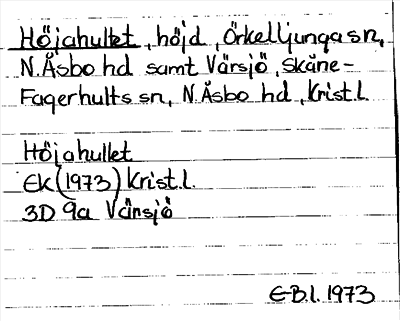 Höjahultet, höjd, Örkelljunga sn,
N. Åsbo hd samt Värsjö, Skåne-
Fagerhults sn, N. Åsbo hd, Krist.l.
Höjahultet
Ek (1973) Krist.l.
3D 9a Värsjö
E-B.l. 1973